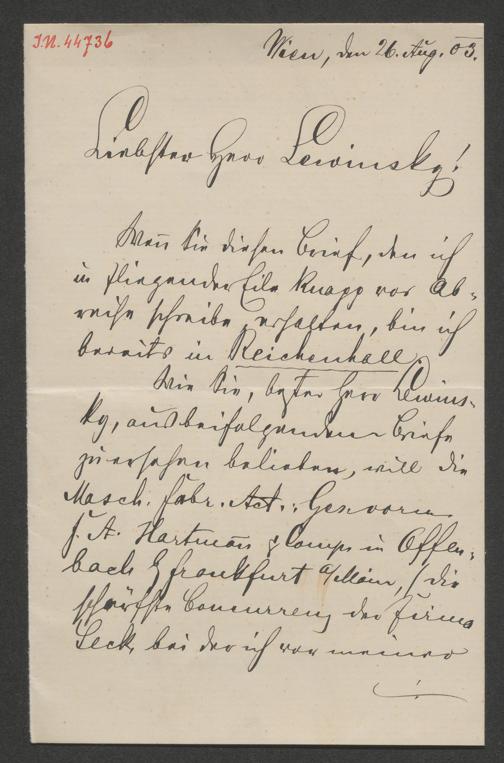 I.N. 44736
Wien, den 26. Aug. 03.
Liebster Herr Lewinsky!
Wen̄ Sie diesen Brief, den ich
in fliegender Eile knapp vor Ab-
reise schreibe, erhalten, bin ich
bereits in Reichenhall.
Wie Sie, bester Herr Lewins-
ky, aus beifolgendem Briefe
zu ersehen belieben, will die
Masch. Fabr. Act.-Ges. vorm.
F. A. Hartman̄ & Comp. in Offen-
bach b/ Frankfurt a/Main, (die
schärfste Concurrenz der Firma
Seck, bei der ich vor meiner